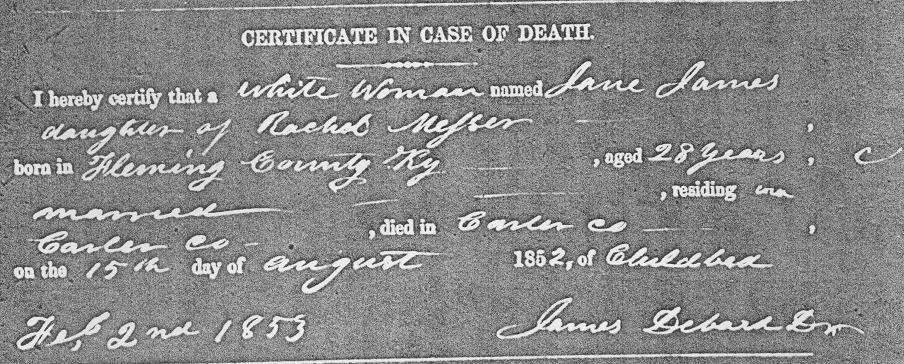 CERTIFICATE IN CASE OF DEATH.
I hereby certify that a White Woman named Jane James
daughter of Rachel Messer ,
born in Fleming County Ky , aged 28 Years ,
, residing in
married , died in Carter Co ,
Carter Co
on the 15th day of august 1852, of Childbed
Feb 2nd 1853 James Debard Dr